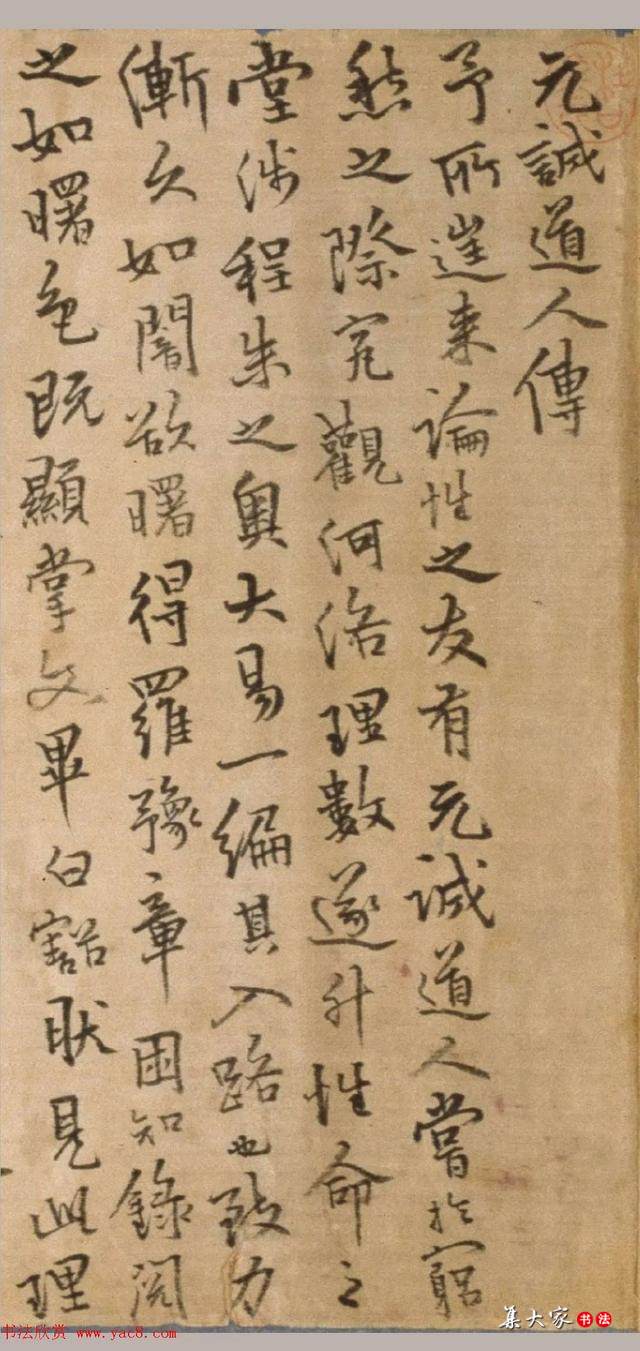 元誠道人傳
予所来論性之友有元誠道人嘗於窮
愁之際究觀河洛理數遂升性命之
堂涉程朱之奧大易一編其入路也致力
漸久如闇欲曙得羅豫章困知錄閱
之如曙色既顯掌文畢白豁肰見此理
集大家书法
书法欣赏 www.yac8.com